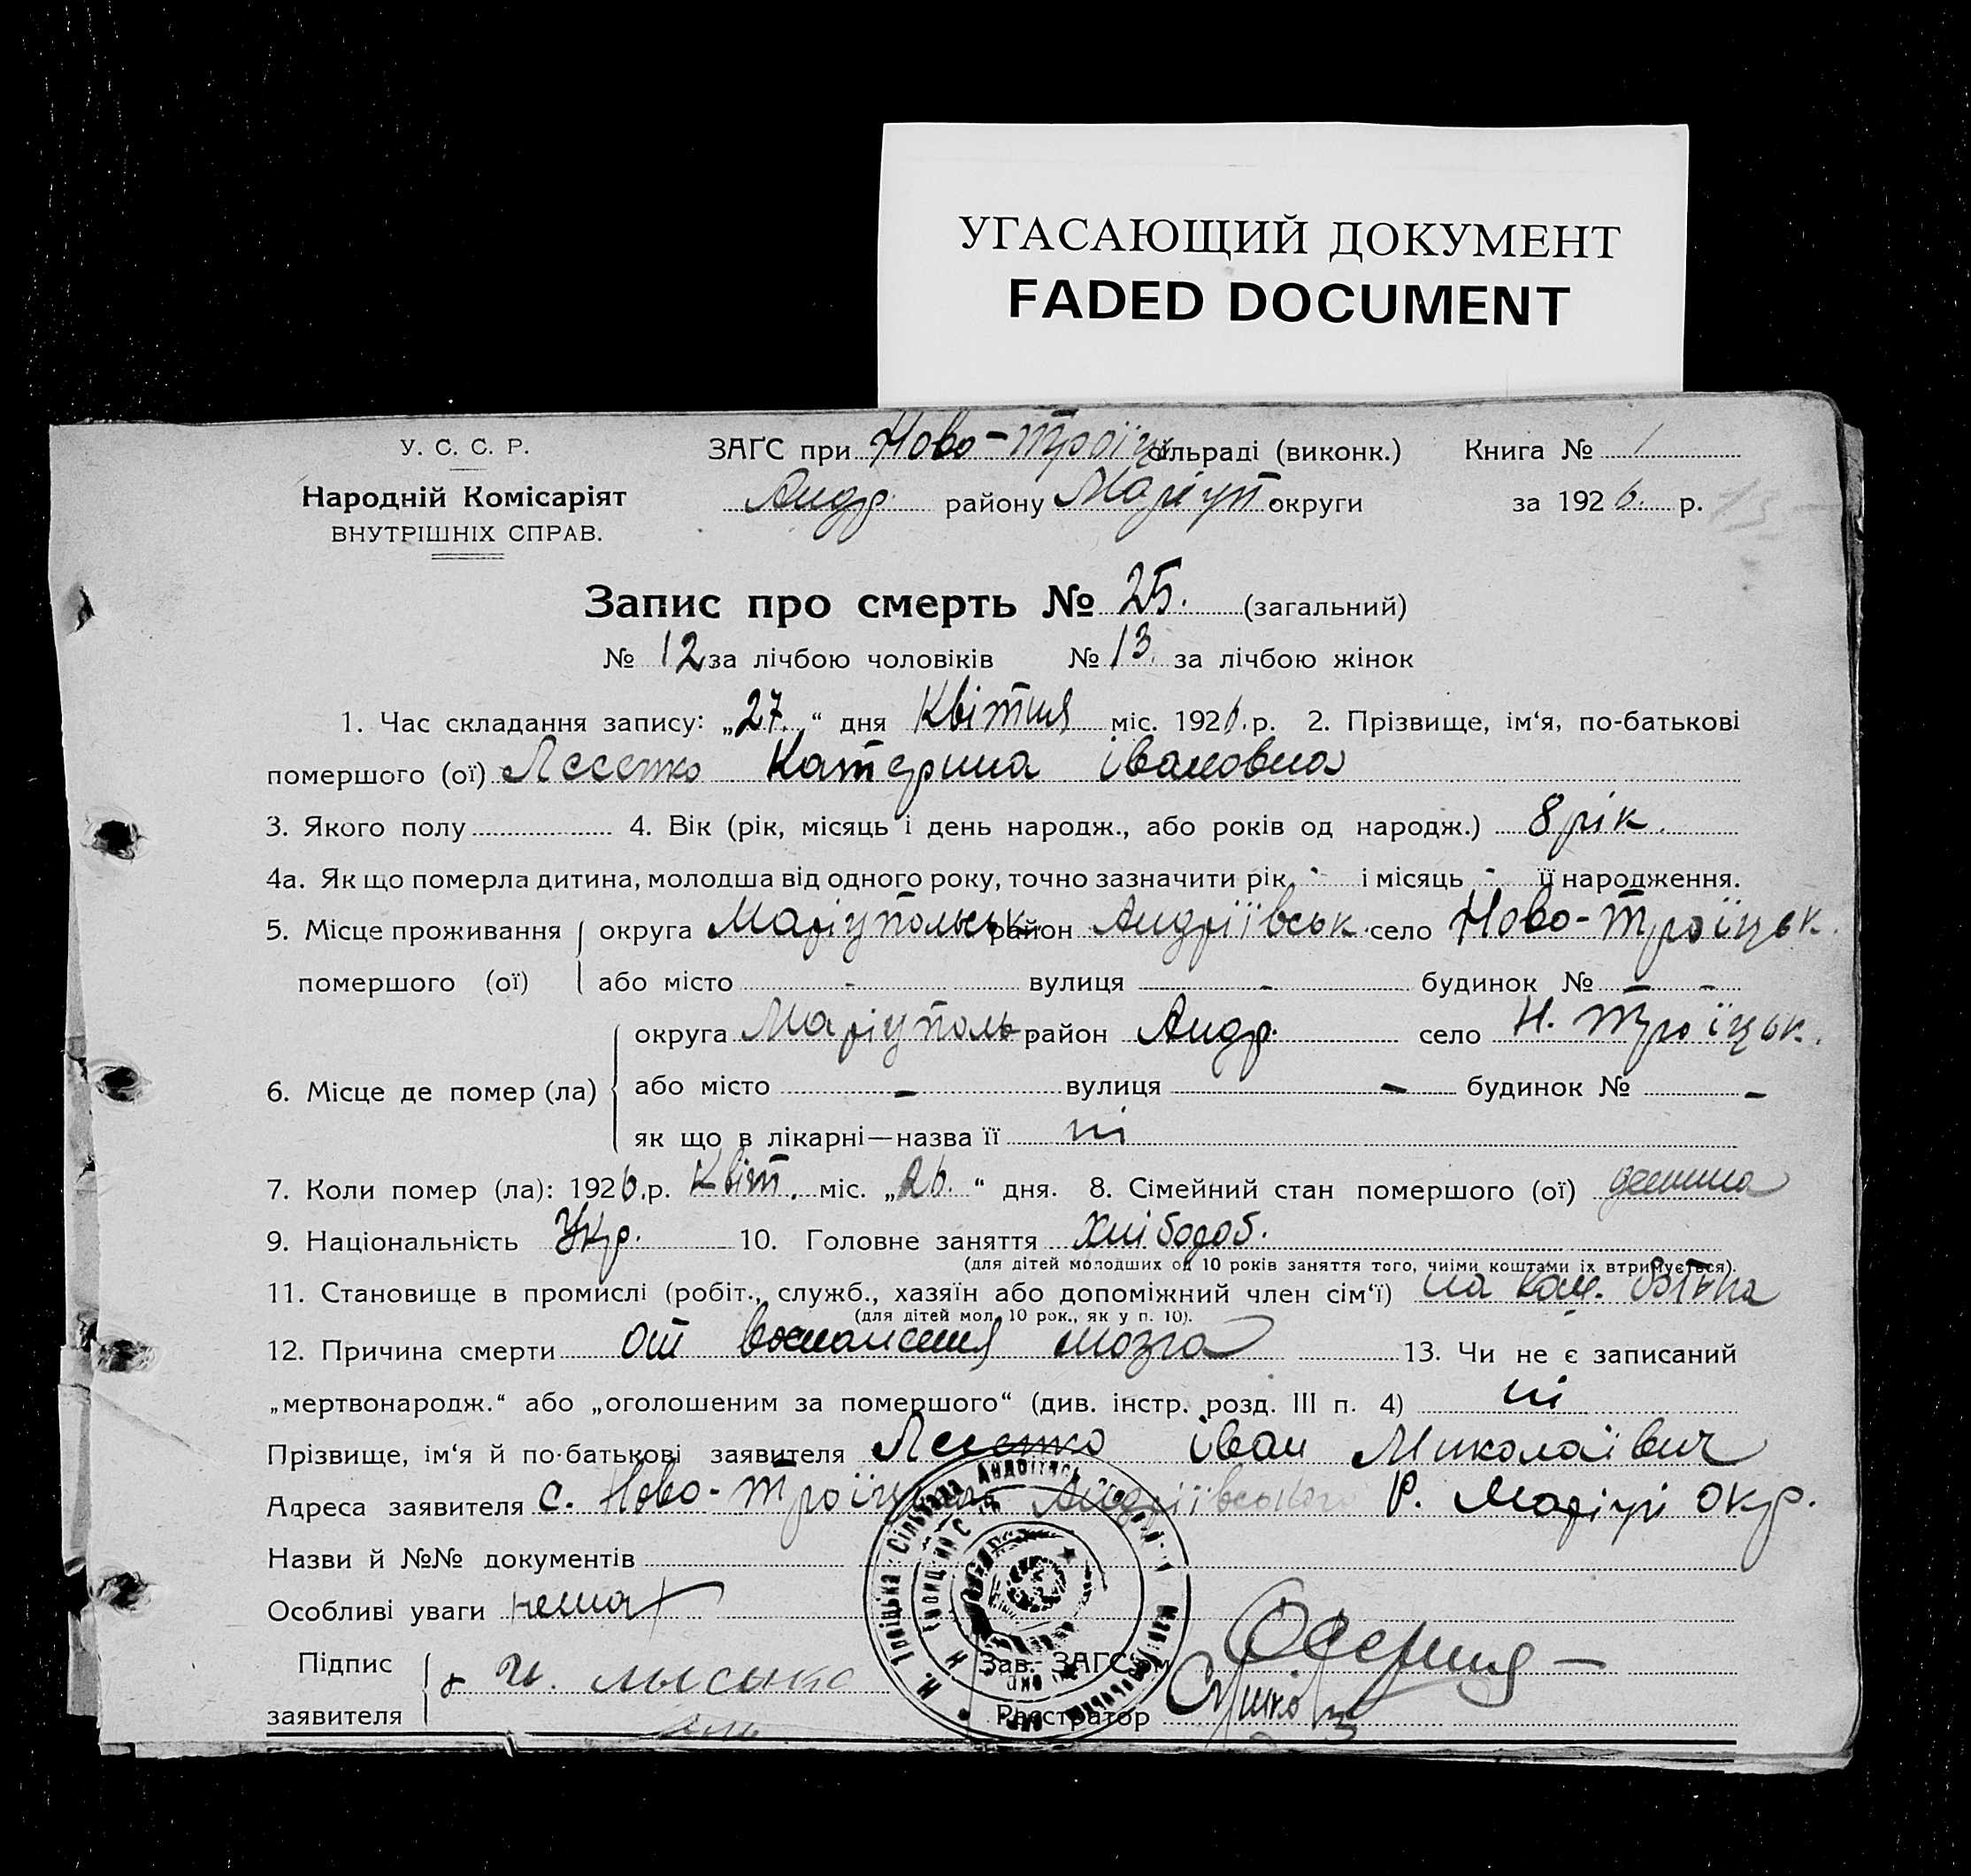 УГАСАЮЩИЙ ДОКУМЕНТ
FADED DOCUMENT
У. С. С. Р.
Народній Комісаріят
ВНУТРІШНІХ СПРАВ.
ЗАГС при Ново-Троїцьк сільраді (виконк.) Книга № 1
Андр. району Маріуп округи за 1926. р.
Запис про смерть № 25. (загальний)
№ 12 за лічбою чоловіків № 13. за лічбою жінок
1. Час складання запису: „27.“ дня Квітня міс. 1926. р. 2. Прізвище, ім‘я, по-батькові
помершого (ої) Лесенко Катерина івановна
3. Якого полу 4. Вік (рік, місяць і день народж., або років од народж.) 8 рік.
4а. Як що померла дитина, молодша від одного року, точно зазначити рік - і місяць - її народження.
5. Місце проживання округа Маріупольськ район Андріївськ. село Ново-Троїцьк.
помершого (ої) або місто - вулиця - будинок № -
округа Маріуполь район Андр. село Н. Троїцьк.
6. Місце де помер (ла) або місто - вулиця - будинок № -
як що в лікарні—назва її ні
7. Коли помер (ла): 1926. р. Квіт. міс. „26.“ дня. 8. Сімейний стан помершого (ої)
9. Національність Укр. 10. Головне заняття Хлібороб.
(для дітей молодших од 10 років заняття того, чиїми коштами їх втримується).
11. Становище в промислі (робіт., служб., хазяїн або допоміжний член сім‘ї) на
(для дітей мол. 10 рок., як у п. 10).
12. Причина смерти от воспаления мозга 13. Чи не є записаний
„мертвонародж.“ або „оголошеним за помершого“ (див. інстр. розд. III п. 4) ні
Прізвище, ім‘я й по-батькові заявителя Лесенко іван Миколаївич
Адреса заявителя с. Ново-Троїцьк Андріївського Р. Маріуп окр.
Назви й №№ документів
Особливі уваги нема
Підпис
заявителя
Зав. ЗАГС‘ом
Реєстратор